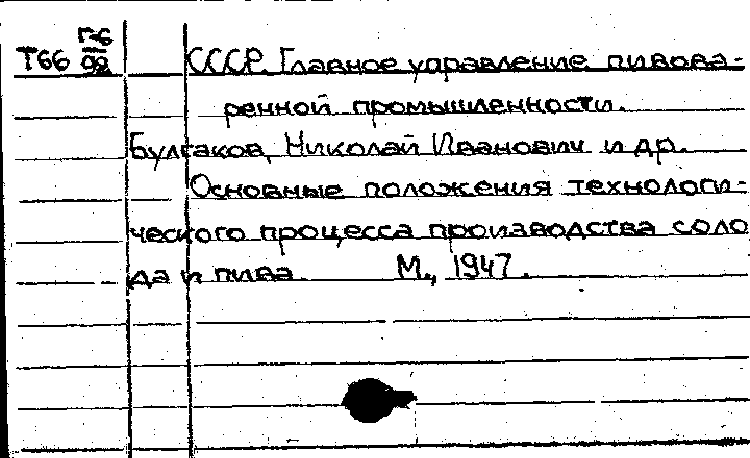 Т66 П6/98 СССР. Главное управление пивова-
ренной промышленности.
Булгаков, Николай Иванович и др.
Основные положения технологи-
ческого процесса производства соло
да и пива. М., 1947.